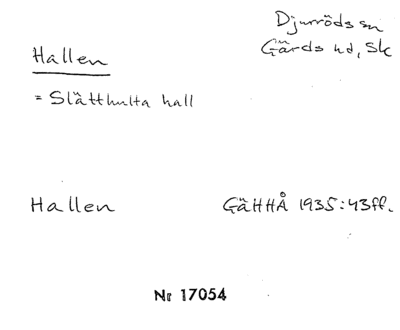 Djurröds sn
Gärds hd, Sk
Hallen
= Slätthulta hall
Hallen GäHHÅ 1935:43ff.
Nr 17054